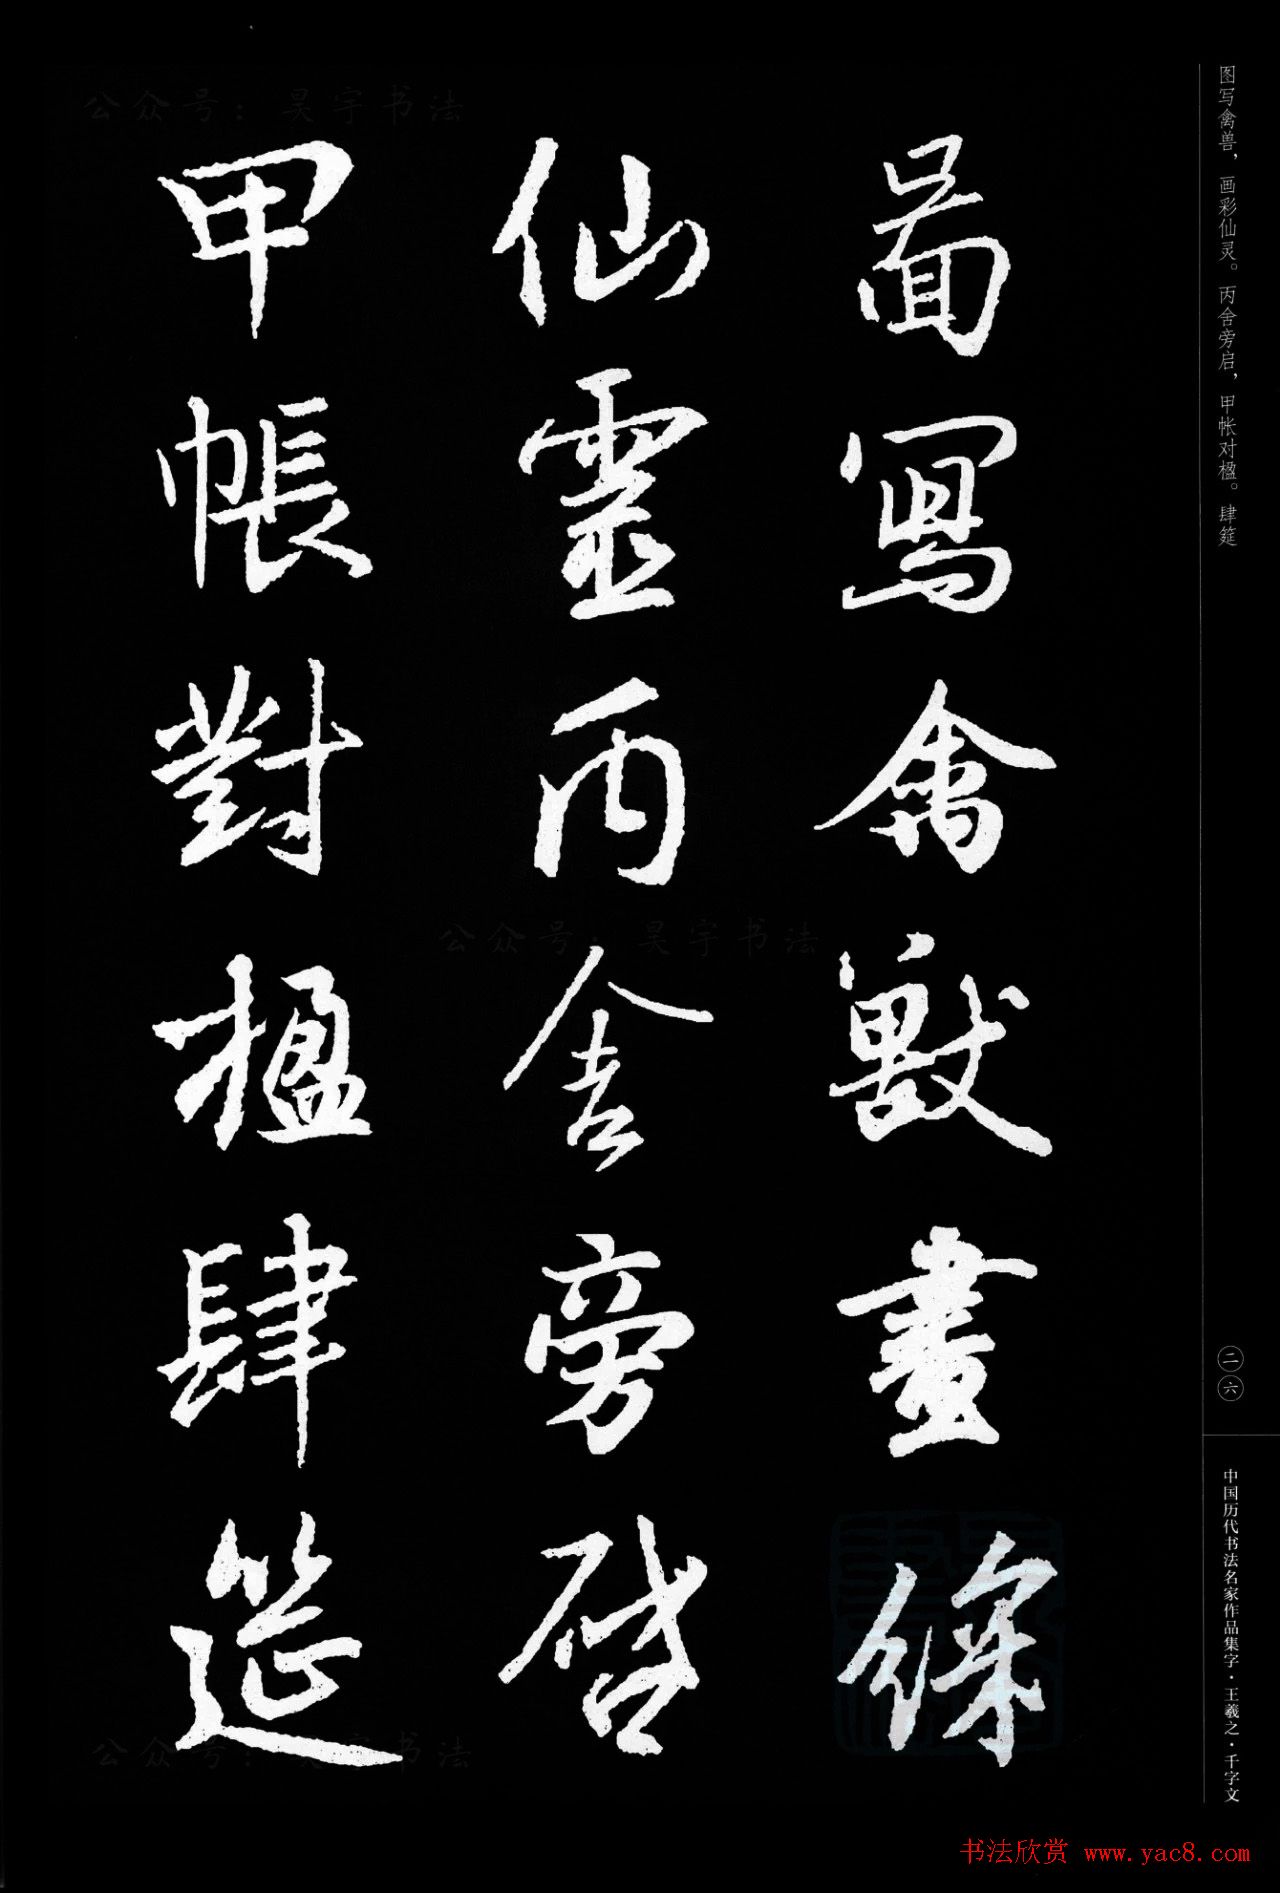 啚寫禽獸畫綵
仙靈丙舍旁啓
甲帳對楹肆筵
图写禽兽，画彩仙灵。丙舍旁启，甲帐对楹。肆筵
二六
中国历代书法名家作品集字·王羲之·千字文
公众号：昊宇书法
公众号：昊宇书法
公众号：昊宇书法
书法欣赏 www.yac8.com